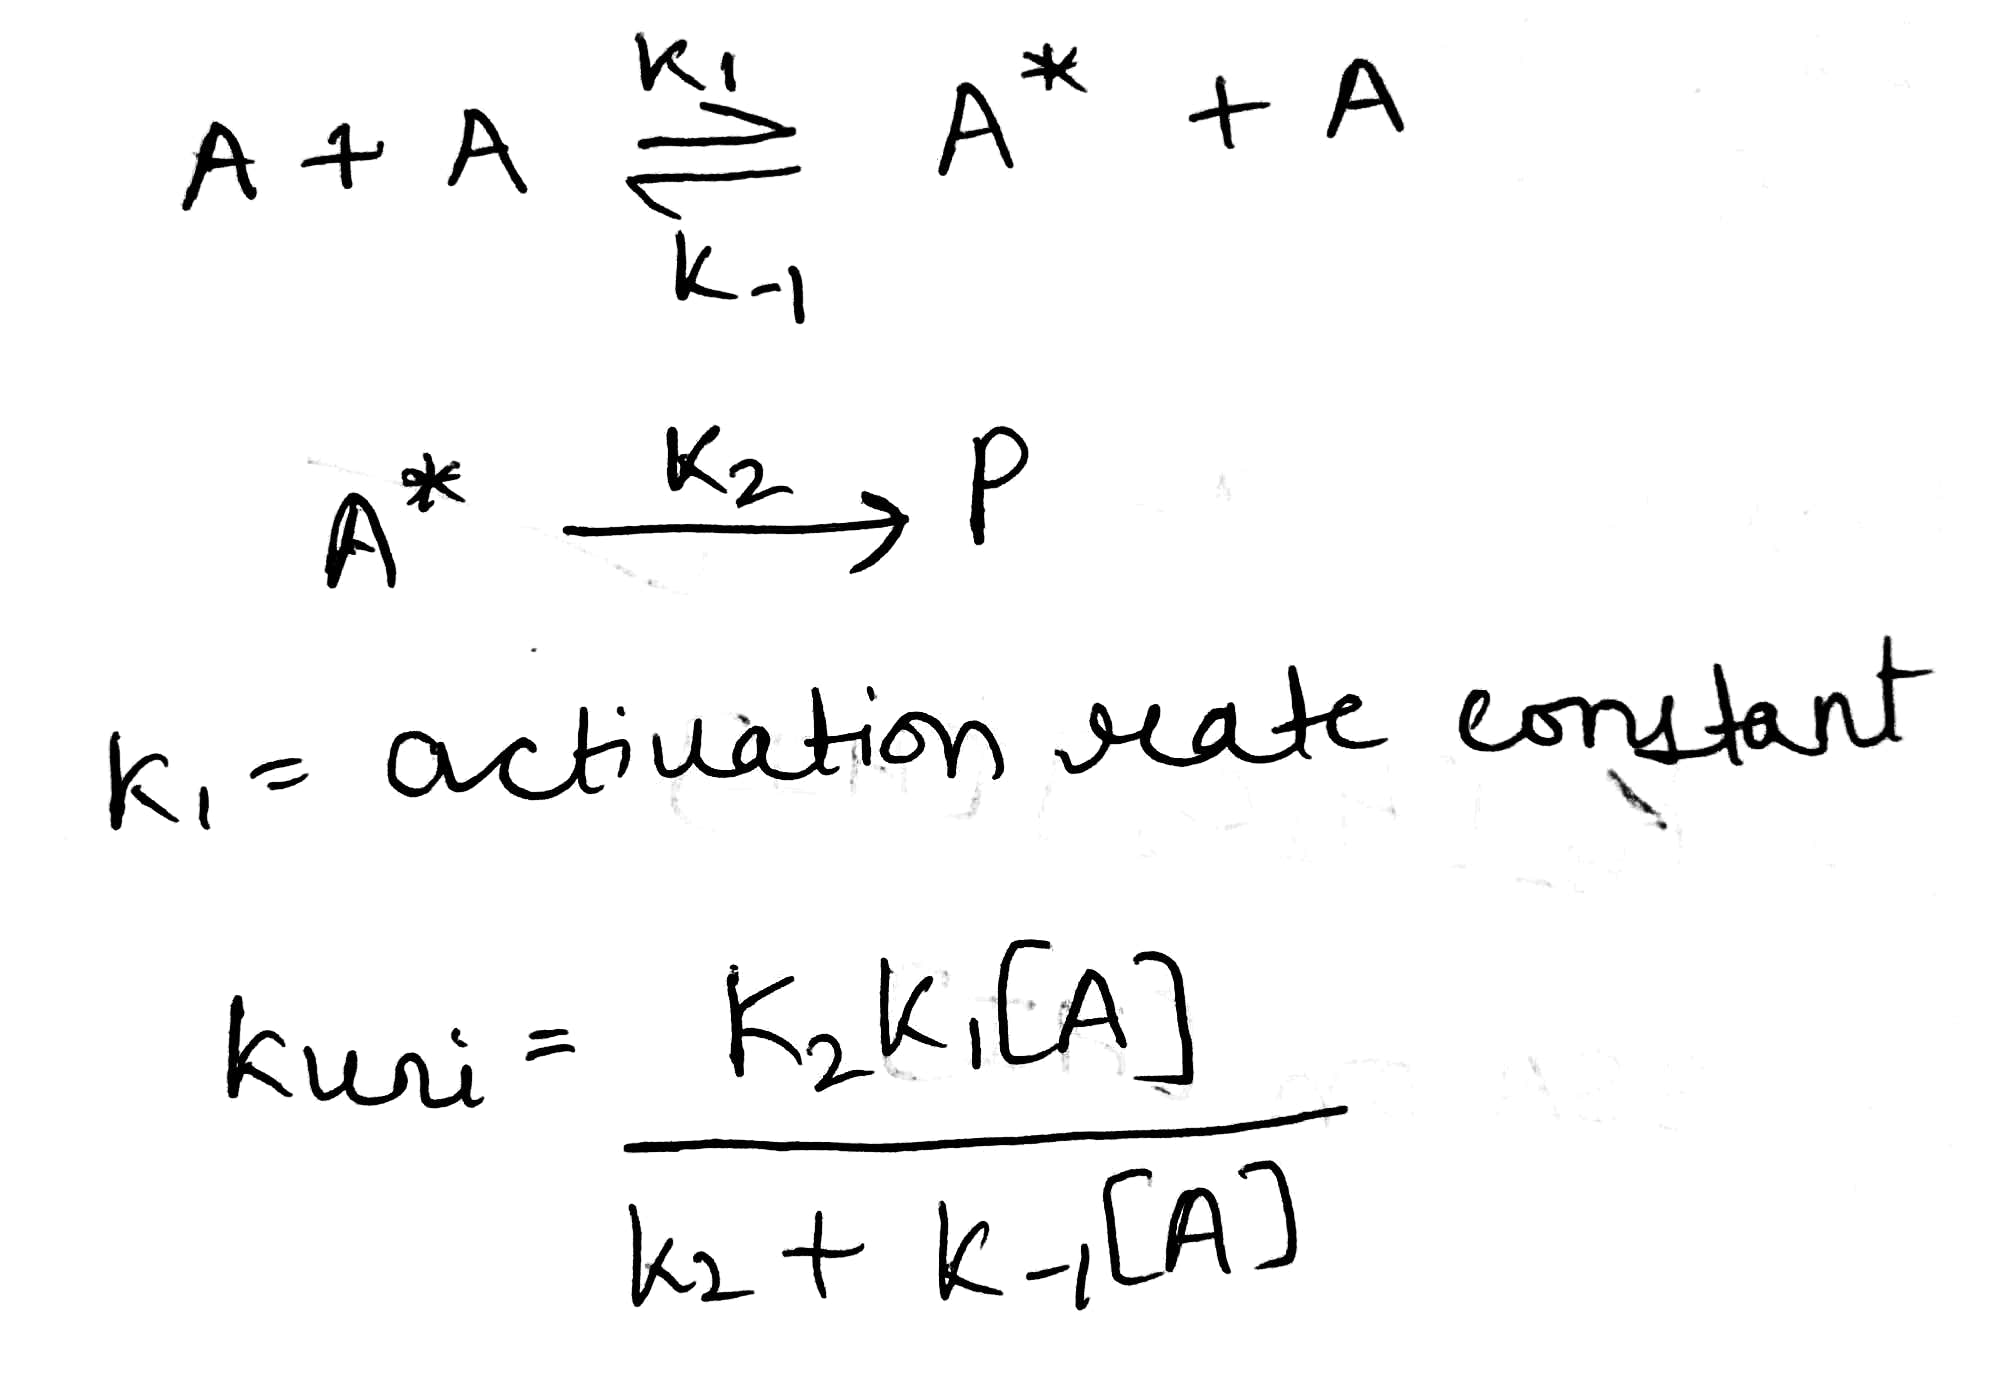 A + A ⇌ A* + A
K1
K-1
A* → P
K2
K1 = activation rate constant
kuni = K2 K1[A]
k2 + K-1[A]